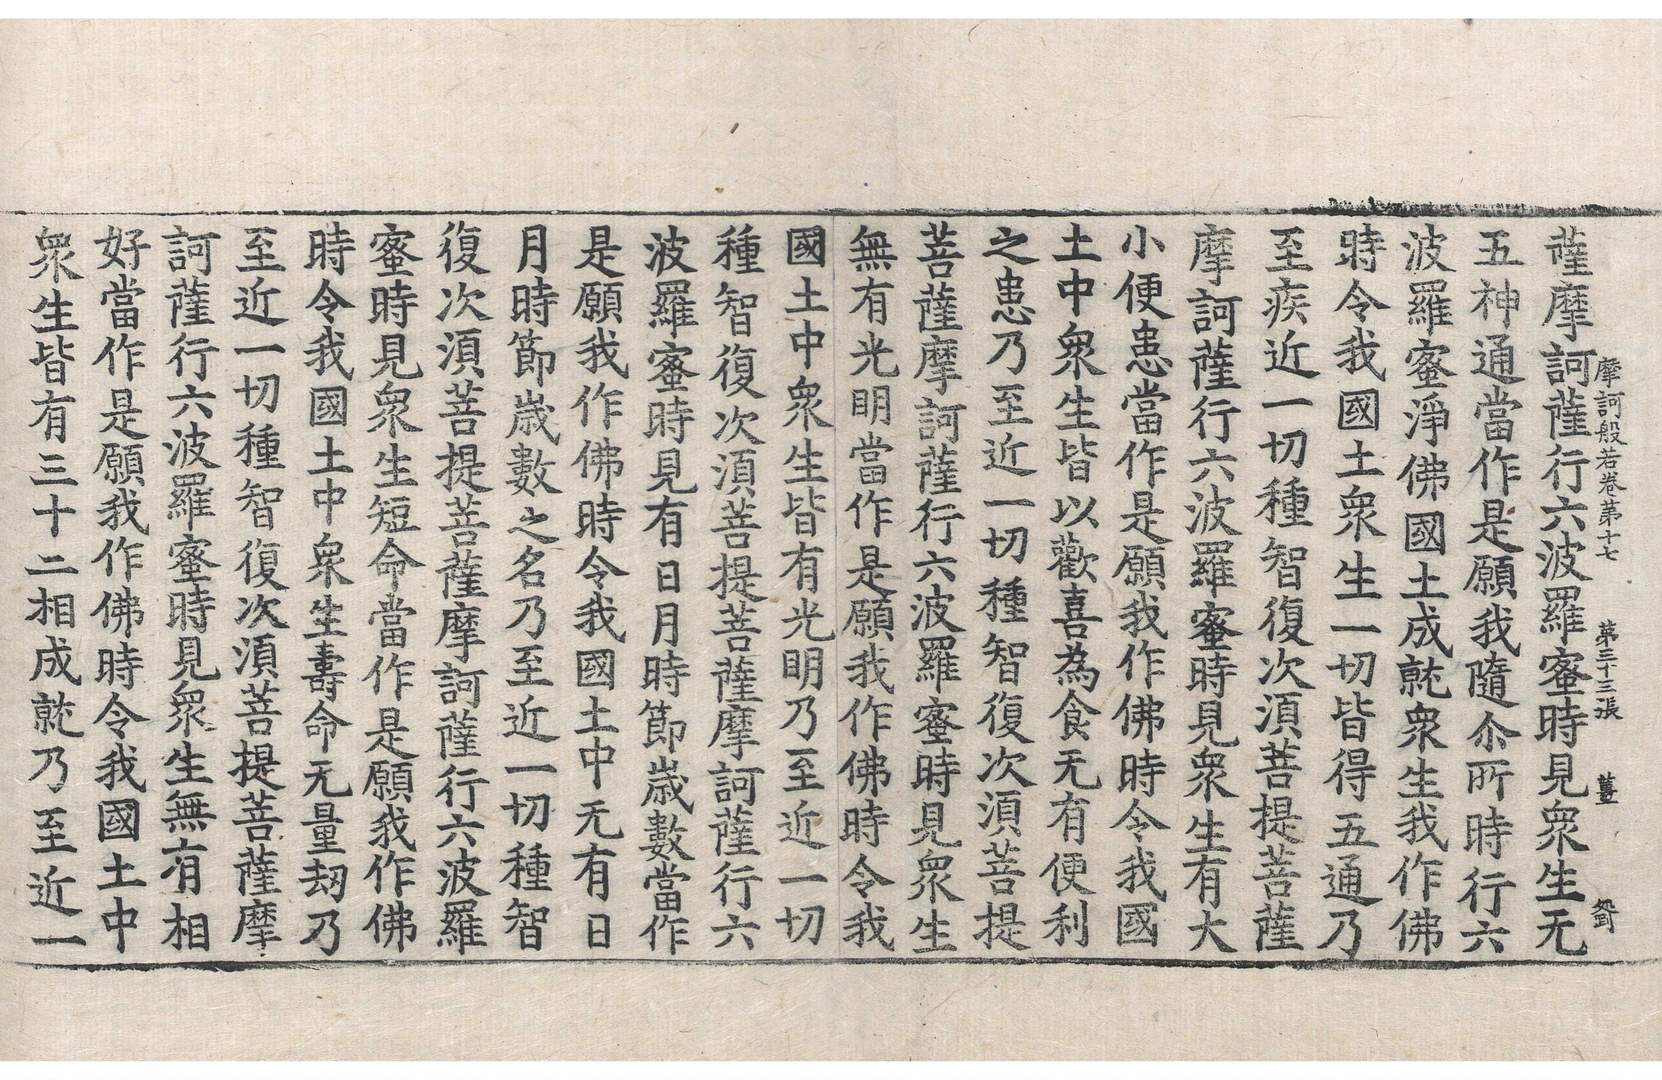 摩訶般若卷第十七 第三十三張 薑
薩摩訶薩行六波羅蜜時見衆生无
五神通當作是願我隨尒所時行六
波羅蜜淨佛國土成就衆生我作佛
時令我國土衆生一切皆得五通乃
至疾近一切種智復次須菩提菩薩
摩訶薩行六波羅蜜時見衆生有大
小便患當作是願我作佛時令我國
土中衆生皆以歡喜為食无有便利
之患乃至近一切種智復次須菩提
菩薩摩訶薩行六波羅蜜時見衆生
無有光明當作是願我作佛時令我
國土中衆生皆有光明乃至近一切
種智復次須菩提菩薩摩訶薩行六
波羅蜜時見有日月時節歲數當作
是願我作佛時令我國土中无有日
月時節歲數之名乃至近一切種智
復次須菩提菩薩摩訶薩行六波羅
蜜時見衆生短命當作是願我作佛
時令我國土中衆生壽命无量劫乃
至近一切種智復次須菩提菩薩摩
訶薩行六波羅蜜時見衆生無有相
好當作是願我作佛時令我國土中
衆生皆有三十二相成就乃至近一